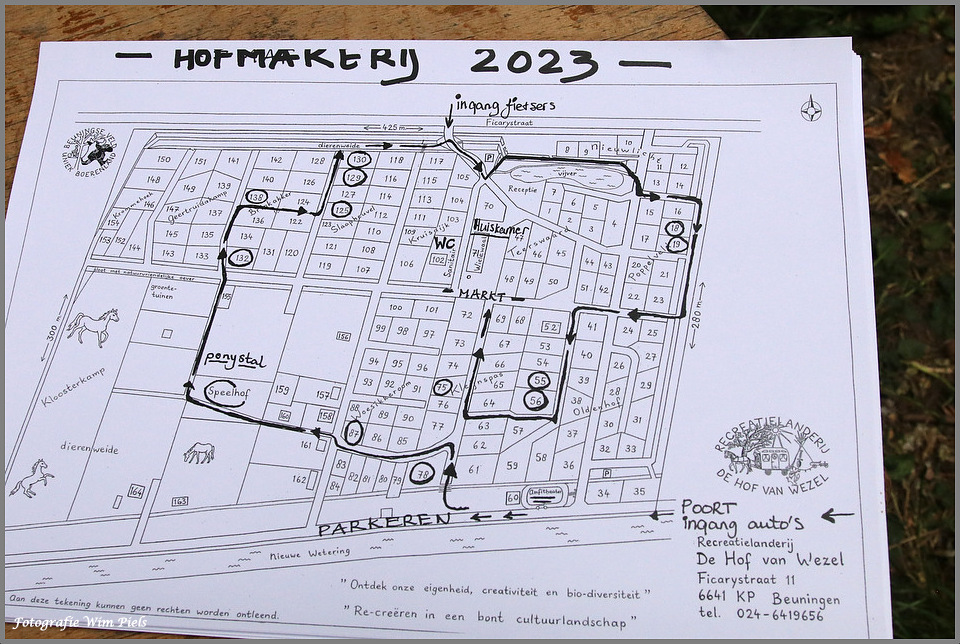 — HOFMAKERIJ 2023 —
ingang fietsers
Ficarystraat
425 m
dierenweide
P
nieuwlicht
vijver
Receptie
BEUNINGSE VELD
BOERENLAND
150 151 141 142 128 130 118 117
8 9 10 11 12
148 149 139 140 126 129 116 115 105
13 14
Kromenhoek
Geertruidakamp
146 147 137 138 127 114 113 104
7 6 5
154 145 134 136 122 123 125 112 111 103 70
1 2 3 4 15 16
Slaaphuvel
Kruisdijk
Huiskamer
WC
Teerswaard
Poppelaar
153 152 144 135 121 124 110 109
47 46 45 17 18 19
143 133 132 131 120 108 102 71
119 107 106
48 49 50 44 43 20 21
51 42 22 23
Sanitair
Wielewaal
— MARKT —
groente-
tuinen
155
156
100 101 72 69 68 52 41 24 25
99 98 97 73 67 53 40 27
300 m.
280 m.
Kloosterkamp
ponystal
Speelhof
94 95 96 74 66 54 39 28 29
93 92 91 75 65 55
Woesikkeroom
Kleinspas
Oldenhof
159 157 88 89 90 76 64 56 38 30 31
160 158 87 86 85 77 63 57 37
dierenweide
161 83 62 32 33
162 84 82 81 80 79 78 61 59 58 36
P
164 163
60 Amfitheater 34 35
RECREATIELANDERIJ
DE HOF VAN WEZEL
PARKEREN
POORT
ingang auto's
Nieuwe Wetering
Recreatielanderij
De Hof van Wezel
Ficarystraat 11
6641 KP Beuningen
tel. 024-6419656
"Ontdek onze eigenheid, creativiteit en bio-diversiteit"
"Re-creëren in een bont cultuurlandschap"
Aan deze tekening kunnen geen rechten worden ontleend.
Fotografie Wim Piels